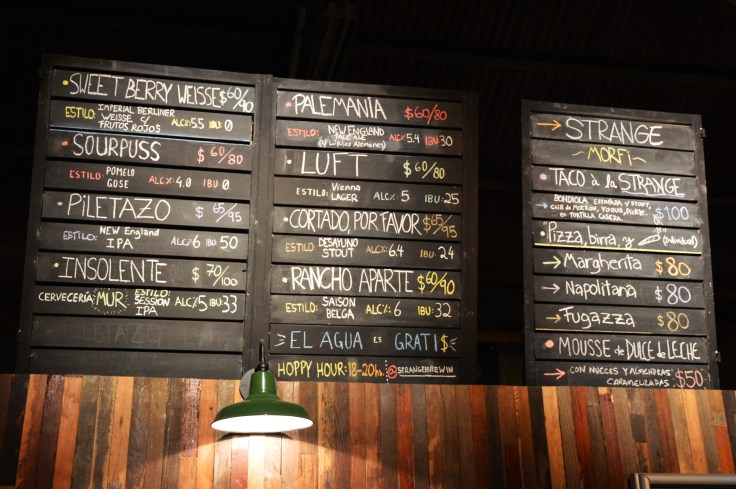 SWEET BERRY WEISSE $60/90
ESTILO: IMPERIAL BERLINER WEISSE c/ FRUTOS ROJOS ALC% 5.5 IBU: 0
SOURPUSS $60/80
ESTILO: POMELO GOSE ALC% 4.0 IBU: 0
PILETAZO $65/95
ESTILO: NEW ENGLAND IPA ALC% 6 IBU 50
INSOLENTE $70/100
CERVECERÍA MUR ESTILO: SESSION IPA ALC% 5 IBU: 33
PALEMANIA $60/80
ESTILO: NEW ENGLAND PALE ALE (c/ Lúpulos Alemanes) ALC% 5.4 IBU 30
LUFT $60/80
ESTILO: Vienna LAGER ALC% 5 IBU: 25
CORTADO, POR FAVOR $65/95
ESTILO: DESAYUNO STOUT ALC% 6.4 IBU: 24
RANCHO APARTE $60/90
ESTILO: SAISON BELGA ALC% 6 IBU: 32
EL AGUA ES GRATI$
HOPPY HOUR: 18-20hs. @STRANGEBREWIN
STRANGE
~MORFI~
TACO à la STRANGE
BONDIOLA
EN TORTILLA CASERA $100
Pizza, birra, y (individual)
Margherita $80
Napolitana $80
Fugazza $80
MOUSSE de DULCE de LECHE
CON NUECES Y ALMENDRAS CARAMELIZADAS $50